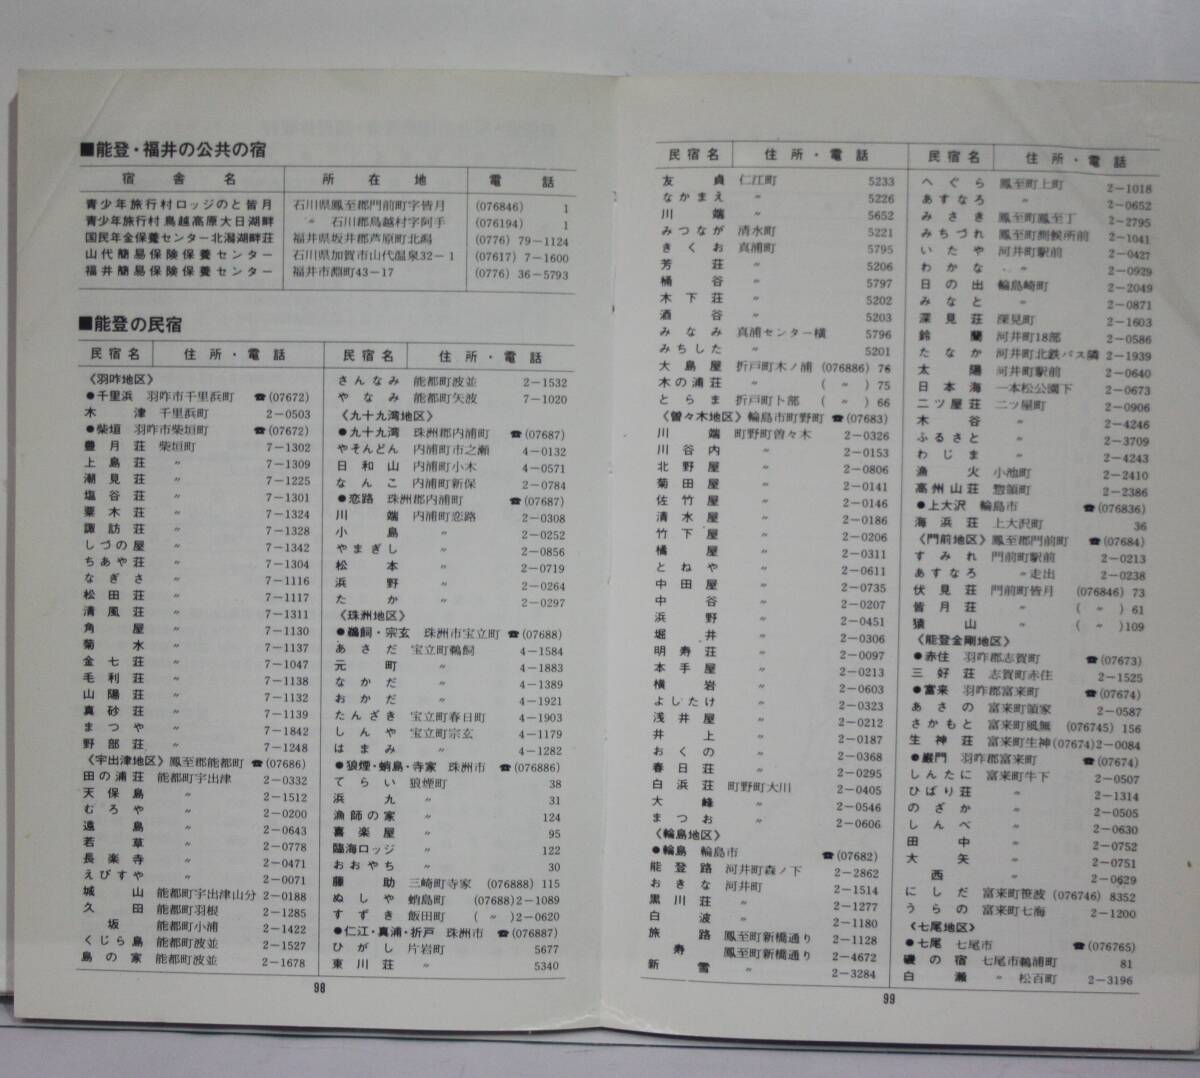 ■能登・福井の公共の宿
宿舎名 所在地 電話
青少年旅行村ロッジのと皆月 石川県鳳至郡門前町字皆月 (076846) 1
青少年旅行村鳥越高原大日湖畔 〃 石川郡鳥越村字阿手 (076194) 1
国民年金保養センター北潟湖畔荘 福井県坂井郡芦原町北潟 (0776) 79-1124
山代簡易保険保養センター 石川県加賀市山代温泉32-1 (07617) 7-1600
福井簡易保険保養センター 福井市淵町43-17 (0776) 36-5793
■能登の民宿
民宿名 住所・電話
《羽咋地区》
●千里浜 羽咋市千里浜町 ☎(07672)
木津 千里浜町 2-0503
●柴垣 羽咋市柴垣町 ☎(07672)
豊月荘 柴垣町 7-1302
上島荘 〃 7-1309
潮見荘 〃 7-1225
塩谷荘 〃 7-1301
粟木荘 〃 7-1324
諏訪荘 〃 7-1328
しづの屋 〃 7-1342
ちあや荘 〃 7-1304
なぎさ 〃 7-1116
松田荘 〃 7-1117
清風荘 〃 7-1311
角屋 〃 7-1130
菊水 〃 7-1137
金七荘 〃 7-1047
毛利荘 〃 7-1138
山陽荘 〃 7-1132
真砂荘 〃 7-1139
まつや 〃 7-1842
野部荘 〃 7-1248
《宇出津地区》鳳至郡能都町 ☎(07686)
田の浦荘 能都町宇出津 2-0332
天保島 〃 2-1512
むろや 〃 2-0200
遠島 〃 2-0643
若草 〃 2-0778
長楽寺 〃 2-0471
えびすや 〃 2-0071
城山 能都町宇出津山分 2-0188
久田 能都町羽根 2-1285
坂 能都町小浦 2-1422
くじら島 能都町波並 2-1527
島の家 能都町波並 2-1678
民宿名 住所・電話
さんなみ 能都町波並 2-1532
やなみ 能都町矢波 7-1020
《九十九湾地区》
●九十九湾 珠洲郡内浦町 ☎(07687)
やそんどん 内浦町市之瀬 4-0132
日和山 内浦町小木 4-0571
なんこ 内浦町新保 2-0784
●恋路 珠洲郡内浦町 ☎(07687)
川端 内浦町恋路 2-0308
小島 〃 2-0252
やまぎし 〃 2-0856
松本 〃 2-0719
浜野 〃 2-0264
たか 〃 2-0297
《珠洲地区》
●鵜飼・宗玄 珠洲市宝立町 ☎(07688)
あさだ 宝立町鵜飼 4-1584
元町 〃 4-1883
なかだ 〃 4-1389
おかだ 〃 4-1921
たんざき 宝立町春日町 4-1903
しんや 宝立町宗玄 4-1179
はまみ 〃 4-1282
●狼煙・蛸島・寺家 珠洲市 ☎(076886)
てらい 狼煙町 38
浜九 〃 31
漁師の家 〃 124
喜楽屋 〃 95
臨海ロッジ 〃 122
おおやち 〃 30
藤助 三崎町寺家 (076888) 115
ぬしや 蛸島町 (07688)2-1089
すずき 飯田町 (〃)2-0620
●仁江・真浦・折戸 珠洲市 ☎(076887)
ひがし 片岩町 5677
東川荘 〃 5340
98
民宿名 住所・電話
友貞 仁江町 5233
なかまえ 〃 5226
川端 〃 5652
みつなが 清水町 5221
きくお 真浦町 5795
芳荘 〃 5206
桶谷 〃 5797
木下荘 〃 5202
酒谷 〃 5203
みなみ 真浦センター横 5796
みちした 〃 5201
大島屋 折戸町木ノ浦 (076886) 76
木の浦荘 〃 (〃) 75
とらま 折戸町卜部 (〃) 66
《曽々木地区》輪島市町野町 ☎(07683)
川端 町野町曽々木 2-0326
川谷内 〃 2-0153
北野屋 〃 2-0806
菊田屋 〃 2-0141
佐竹屋 〃 2-0146
清水屋 〃 2-0186
竹下屋 〃 2-0206
橘屋 〃 2-0311
とねや 〃 2-0611
中田屋 〃 2-0735
中谷 〃 2-0207
浜野 〃 2-0451
堀井 〃 2-0306
明寿荘 〃 2-0097
本手屋 〃 2-0213
横岩 〃 2-0603
よしたけ 〃 2-0323
浅井屋 〃 2-0212
井上 〃 2-0187
おくの 〃 2-0368
春日荘 〃 2-0295
白浜荘 町野町大川 2-0405
大峰 〃 2-0546
まつお 〃 2-0606
《輪島地区》
●輪島 輪島市 ☎(07682)
能登路 河井町森ノ下 2-2862
おきな 河井町 2-1514
黒川荘 〃 2-1277
白波 〃 2-1180
旅路 鳳至町新橋通り 2-1128
寿 鳳至町新橋通り 2-4672
新雪 〃 2-3284
民宿名 住所・電話
へぐら 鳳至町上町 2-1018
あすなろ 〃 2-0652
みさき 鳳至町鳳至丁 2-2795
みちづれ 鳳至町測候所前 2-1041
いたや 河井町駅前 2-0427
わかな 〃 2-0929
日の出 輪島崎町 2-2049
みなと 〃 2-0871
深見荘 深見町 2-1603
鈴蘭 河井町18部 2-0586
たなか 河井町北鉄バス隣 2-1939
太陽 河井町駅前 2-0640
日本海 一本松公園下 2-0673
二ツ屋荘 二ツ屋町 2-0906
木谷 〃 2-4246
ふるさと 〃 2-3709
わじま 〃 2-4243
漁火 小池町 2-2410
高州山荘 惣領町 2-2386
●上大沢 輪島市 ☎(076836)
海浜荘 上大沢町 36
《門前地区》鳳至郡門前町 ☎(07684)
すみれ 門前町駅前 2-0213
あすなろ 〃走出 2-0238
伏見荘 門前町皆月 (076846) 73
皆月荘 〃 (〃) 61
猿山 〃 (〃)109
《能登金剛地区》
●赤住 羽咋郡志賀町 ☎(07673)
三好荘 志賀町赤住 2-1525
●富来 羽咋郡富来町 ☎(07674)
あさの 富来町領家 2-0587
さかもと 富来町風無 (076745) 156
生神荘 富来町生神(07674)2-0084
●巌門 羽咋郡富来町 ☎(07674)
しんたに 富来町牛下 2-0507
ひばり荘 〃 2-1314
のざか 〃 2-0505
しんべ 〃 2-0630
田中 〃 2-0752
大矢 〃 2-0751
西 〃 2-0629
にしだ 富来町笹波 (076746) 8352
うらの 富来町七海 2-1200
《七尾地区》
●七尾 七尾市 ☎(076765)
磯の宿 七尾市鵜浦町 81
白瀬 〃 松百町 2-3196
99